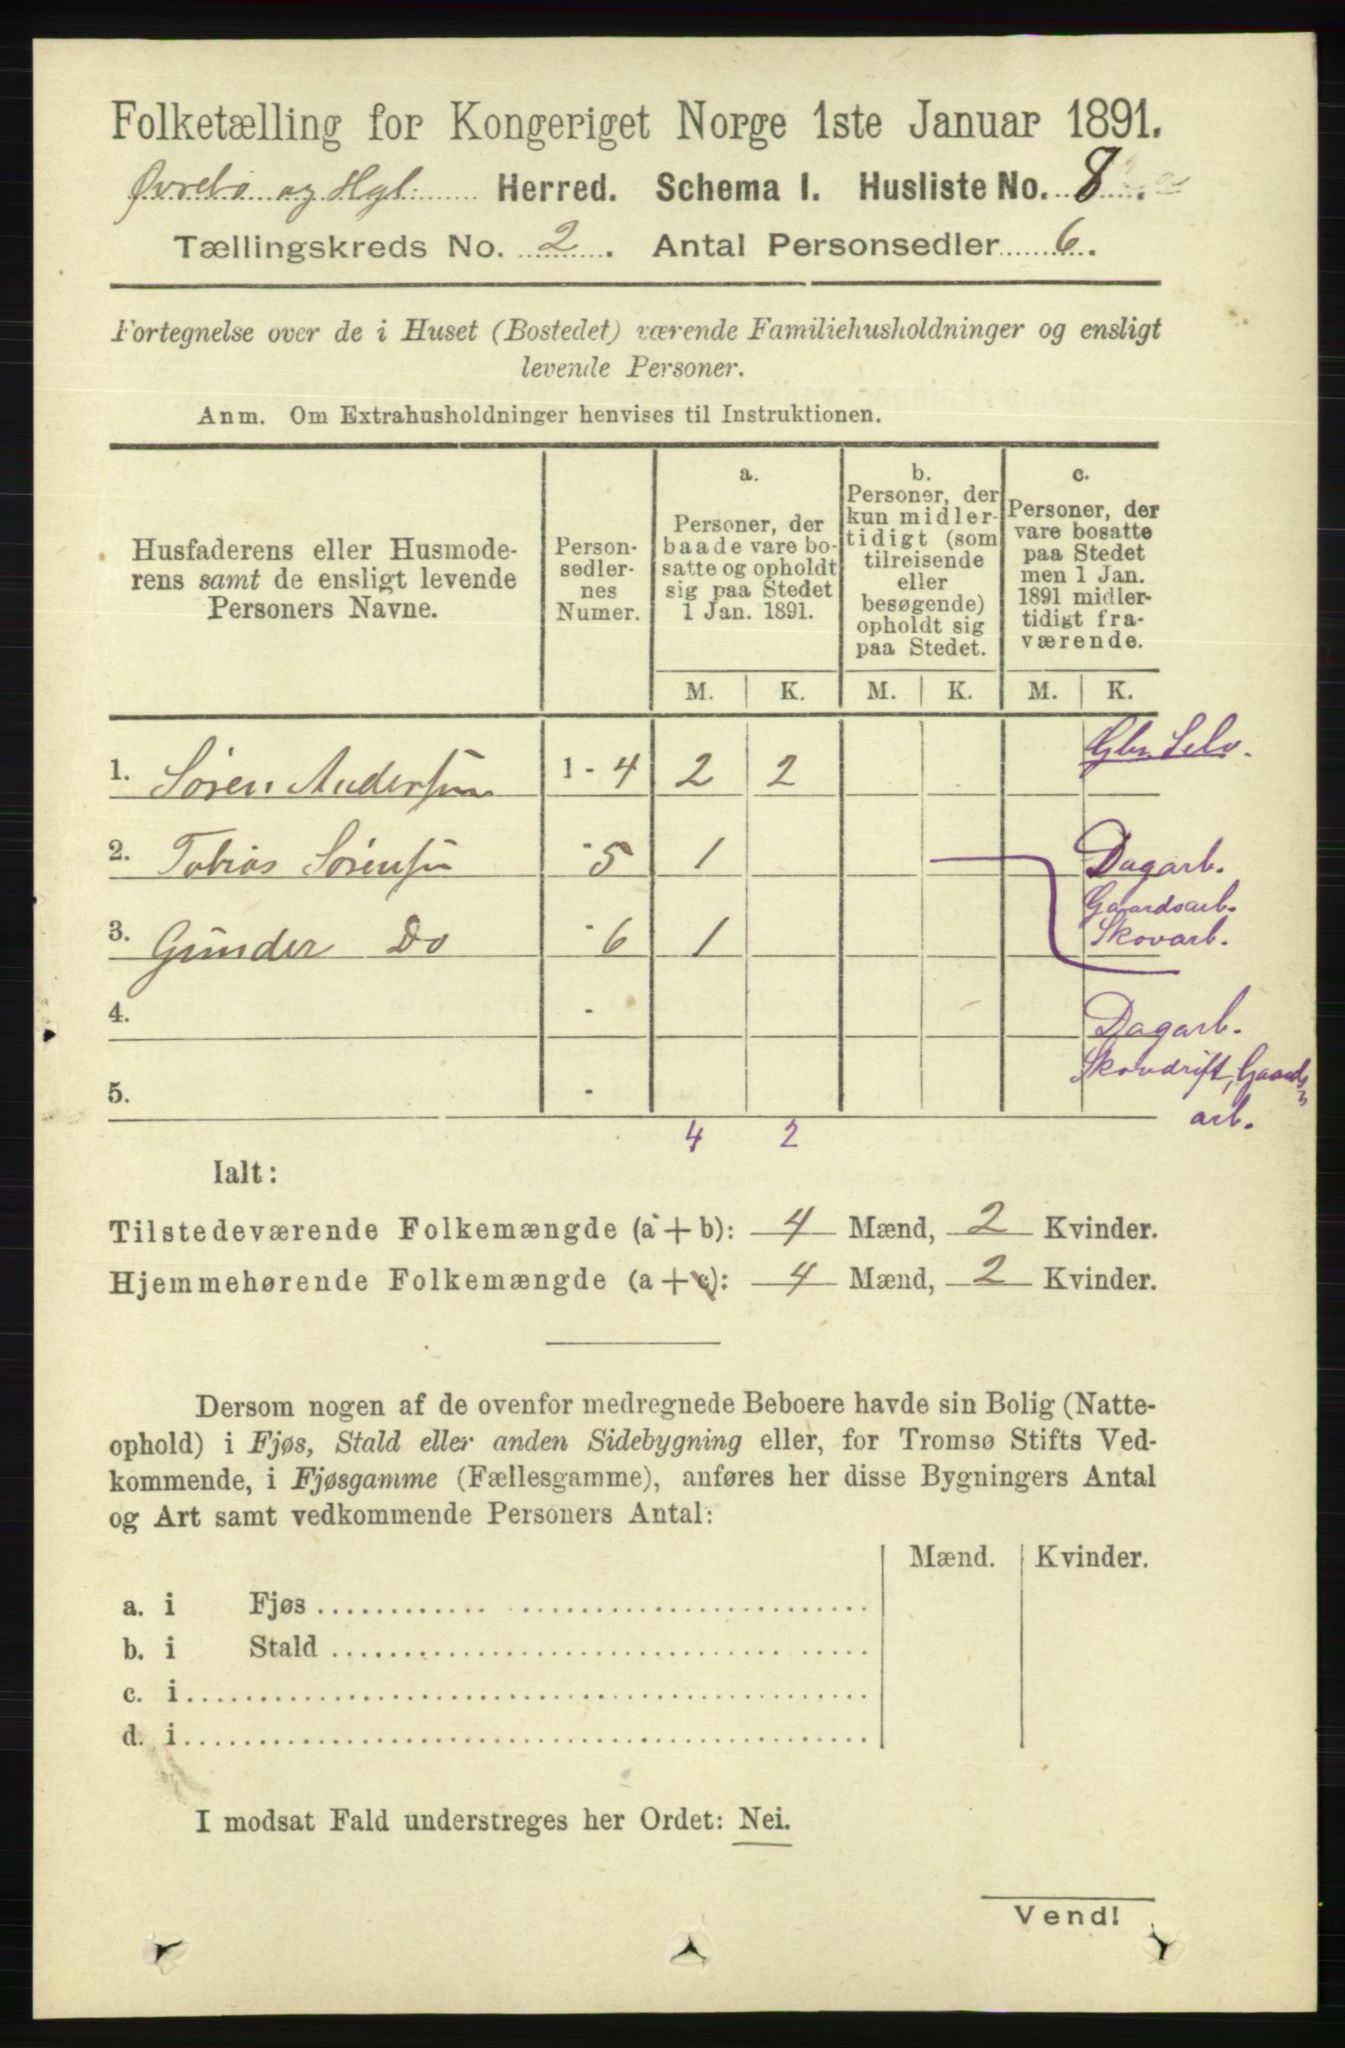 Folketælling for Kongeriget Norge 1ste Januar 1891.
Øvrebø og Hgl. Herred. Schema I. Husliste No. 8.
Tællingskreds No. 2. Antal Personsedler 6.
Fortegnelse over de i Huset (Bostedet) værende Familiehusholdninger og ensligt
levende Personer.
Anm. Om Extrahusholdninger henvises til Instruktionen.
Husfaderens eller Husmode-
rens samt de ensligt levende
Personers Navne.
Person-
sedler-
nes
Numer.
a.
Personer, der
baade vare bo-
satte og opholdt
sig paa Stedet
1 Jan. 1891.
b.
Personer, der
kun midler-
tidigt (som
tilreisende
eller
besøgende)
opholdt sig
paa Stedet.
c.
Personer, der
vare bosatte
paa Stedet
men 1 Jan.
1891 midler-
tidigt fra-
værende.
M. K. M. K. M. K.
1. Søren Andersen 1 - 4 2 2 Gbr. Selv.
2. Tobias Sørensen - 5 1 Dagarb.
Gaardsarb.
3. Gunder Do - 6 1 Skovarb.
4. - Dagarb.
Skovdrift, Gaards
5. - arb.
4 2
Ialt:
Tilstedeværende Folkemængde (a + b): 4 Mænd, 2 Kvinder.
Hjemmehørende Folkemængde (a + c): 4 Mænd, 2 Kvinder.
Dersom nogen af de ovenfor medregnede Beboere havde sin Bolig (Natte-
ophold) i Fjøs, Stald eller anden Sidebygning eller, for Tromsø Stifts Ved-
kommende, i Fjøsgamme (Fællesgamme), anføres her disse Bygningers Antal
og Art samt vedkommende Personers Antal:
Mænd. Kvinder.
a. i Fjøs
b. i Stald
c. i
d. i
I modsat Fald understreges her Ordet: Nei.
Vend!